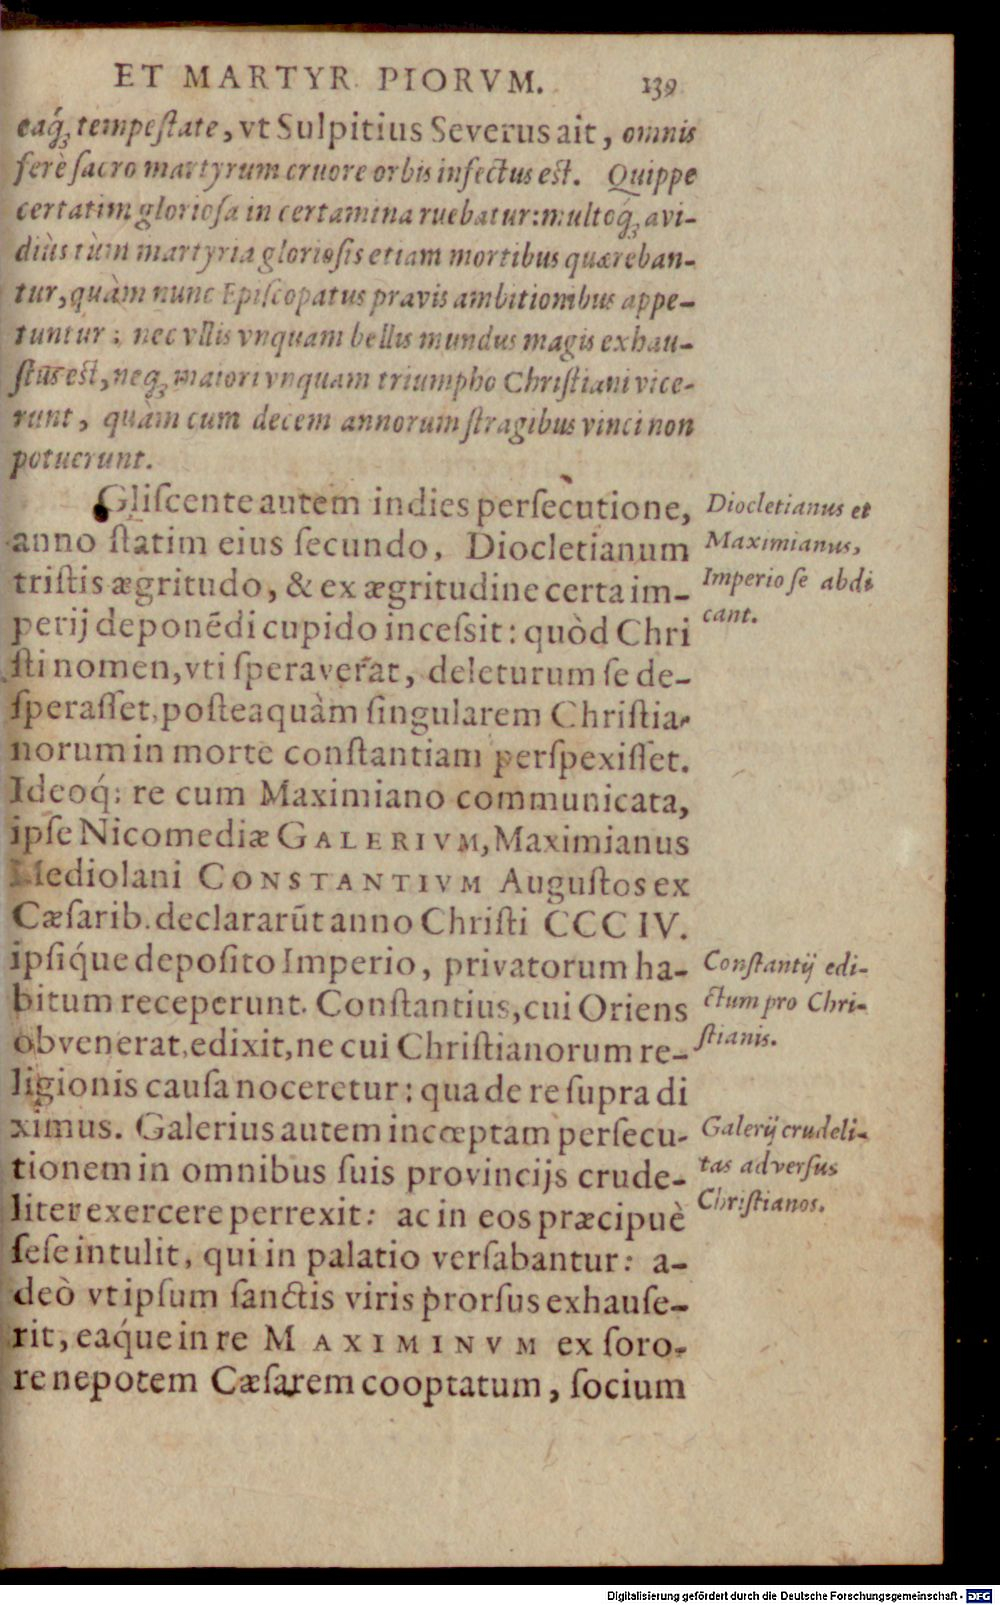 ET MARTYR. PIORVM. 139
eaq́ꝫ tempeſtate, vt Sulpitius Severus ait, omnis
ferè ſacro martyrum cruore orbis infectus eſt. Quippe
certatim glorioſa in certamina ruebatur: multoq́ꝫ avi-
diùs tùm martyria glorioſis etiam mortibus quæreban-
tur, quàm nunc Epiſcopatus pravis ambitionibus appe-
tuntur: nec vllis vnquam bellis mundus magis exhau-
ſtus eſt, neqꝫ maiori vnquam triumpho Chriſtiani vice-
runt, quàm cum decem annorum ſtragibus vinci non
potuerunt.
Gliſcente autem indies perſecutione,
anno ſtatim eius ſecundo, Diocletianum
triſtis ægritudo, & ex ægritudine certa im-
perij deponēdi cupido inceſsit: quòd Chri
ſti nomen, vti ſperaverat, deleturum ſe de-
ſperaſſet, poſteaquàm ſingularem Chriſtia-
norum in morte conſtantiam perſpexiſſet.
Ideoq́; re cum Maximiano communicata,
ipſe Nicomediæ GALERIVM, Maximianus
Mediolani CONSTANTIVM Auguſtos ex
Cæſarib. declararūt anno Chriſti CCC IV.
ipſiq́ue depoſito Imperio, privatorum ha-
bitum receperunt. Conſtantius, cui Oriens
obvenerat, edixit, ne cui Chriſtianorum re-
ligionis cauſa noceretur: qua de re ſupra di
ximus. Galerius autem incœptam perſecu-
tionem in omnibus ſuis provincijs crude-
liter exercere perrexit: ac in eos præcipuè
ſeſe intulit, qui in palatio verſabantur: a-
deò vt ipſum ſanctis viris prorſus exhauſe-
rit, eaq́ue in re MAXIMINVM ex ſoro-
re nepotem Cæſarem cooptatum, ſocium
Diocletianus et
Maximianus,
Imperio ſe abdi
cant.
Conſtantij edi-
ctum pro Chri-
ſtianis.
Galerij crudeli-
tas adverſus
Chriſtianos.
Digitalisierung gefördert durch die Deutsche Forschungsgemeinschaft - DFG